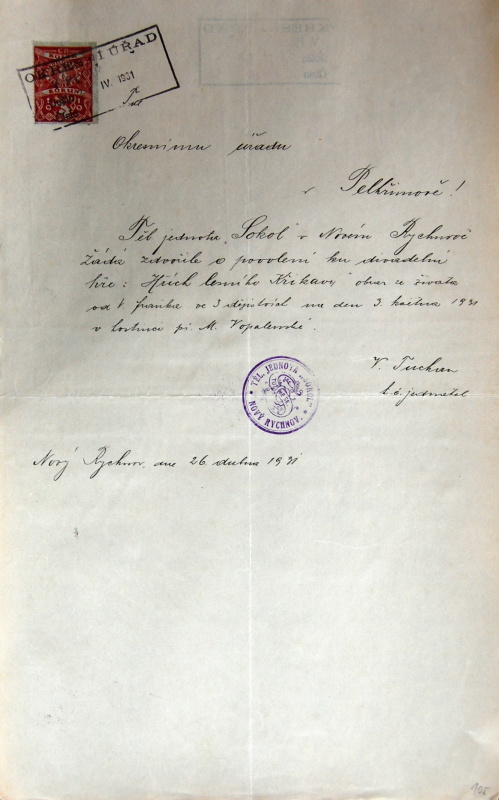 OKRESNÍ ÚŘAD
IV. 1931
KORUN
Okresnímu úřadu
v Pelhřimově!
Těl. jednota „Sokol" v Novém Rychnově
žádá zdvořile o povolení ku divadelní
hře: Hřích lesního Křikavy obraz ze života
od F. ve 3 dějstvích na den 3. května 1931
v hostinci pí. M. Vopalenské.
V. Tuchan
t. č. jednatel
TĚL. JEDNOTA „SOKOL"
NOVÝ RYCHNOV.
Nový Rychnov, dne 26. dubna 1931
105